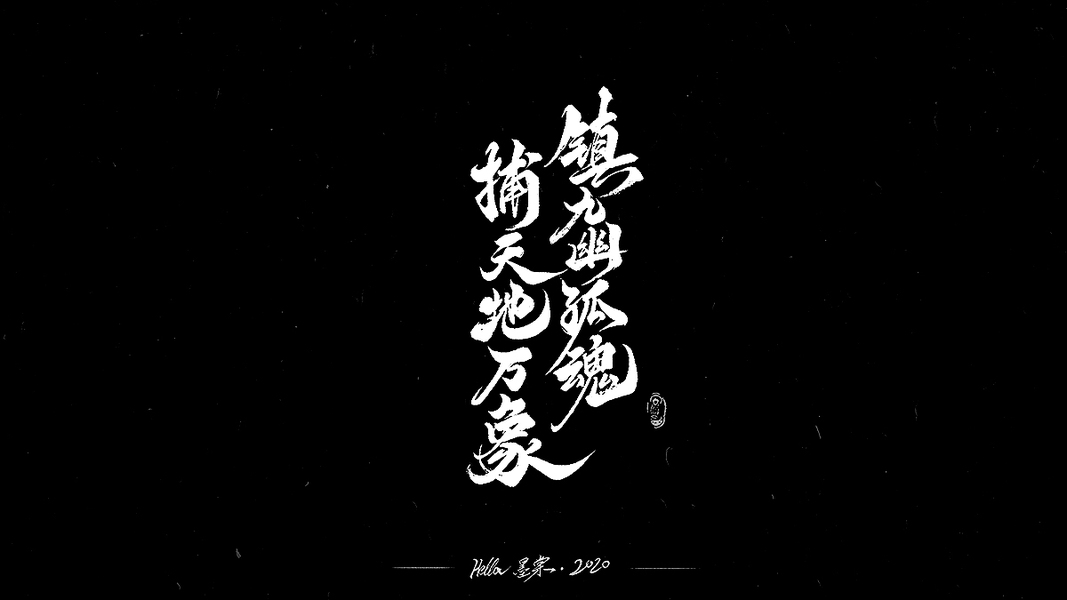 镇九幽孤魂
捕天地万象
Hello 墨棠 · 2020